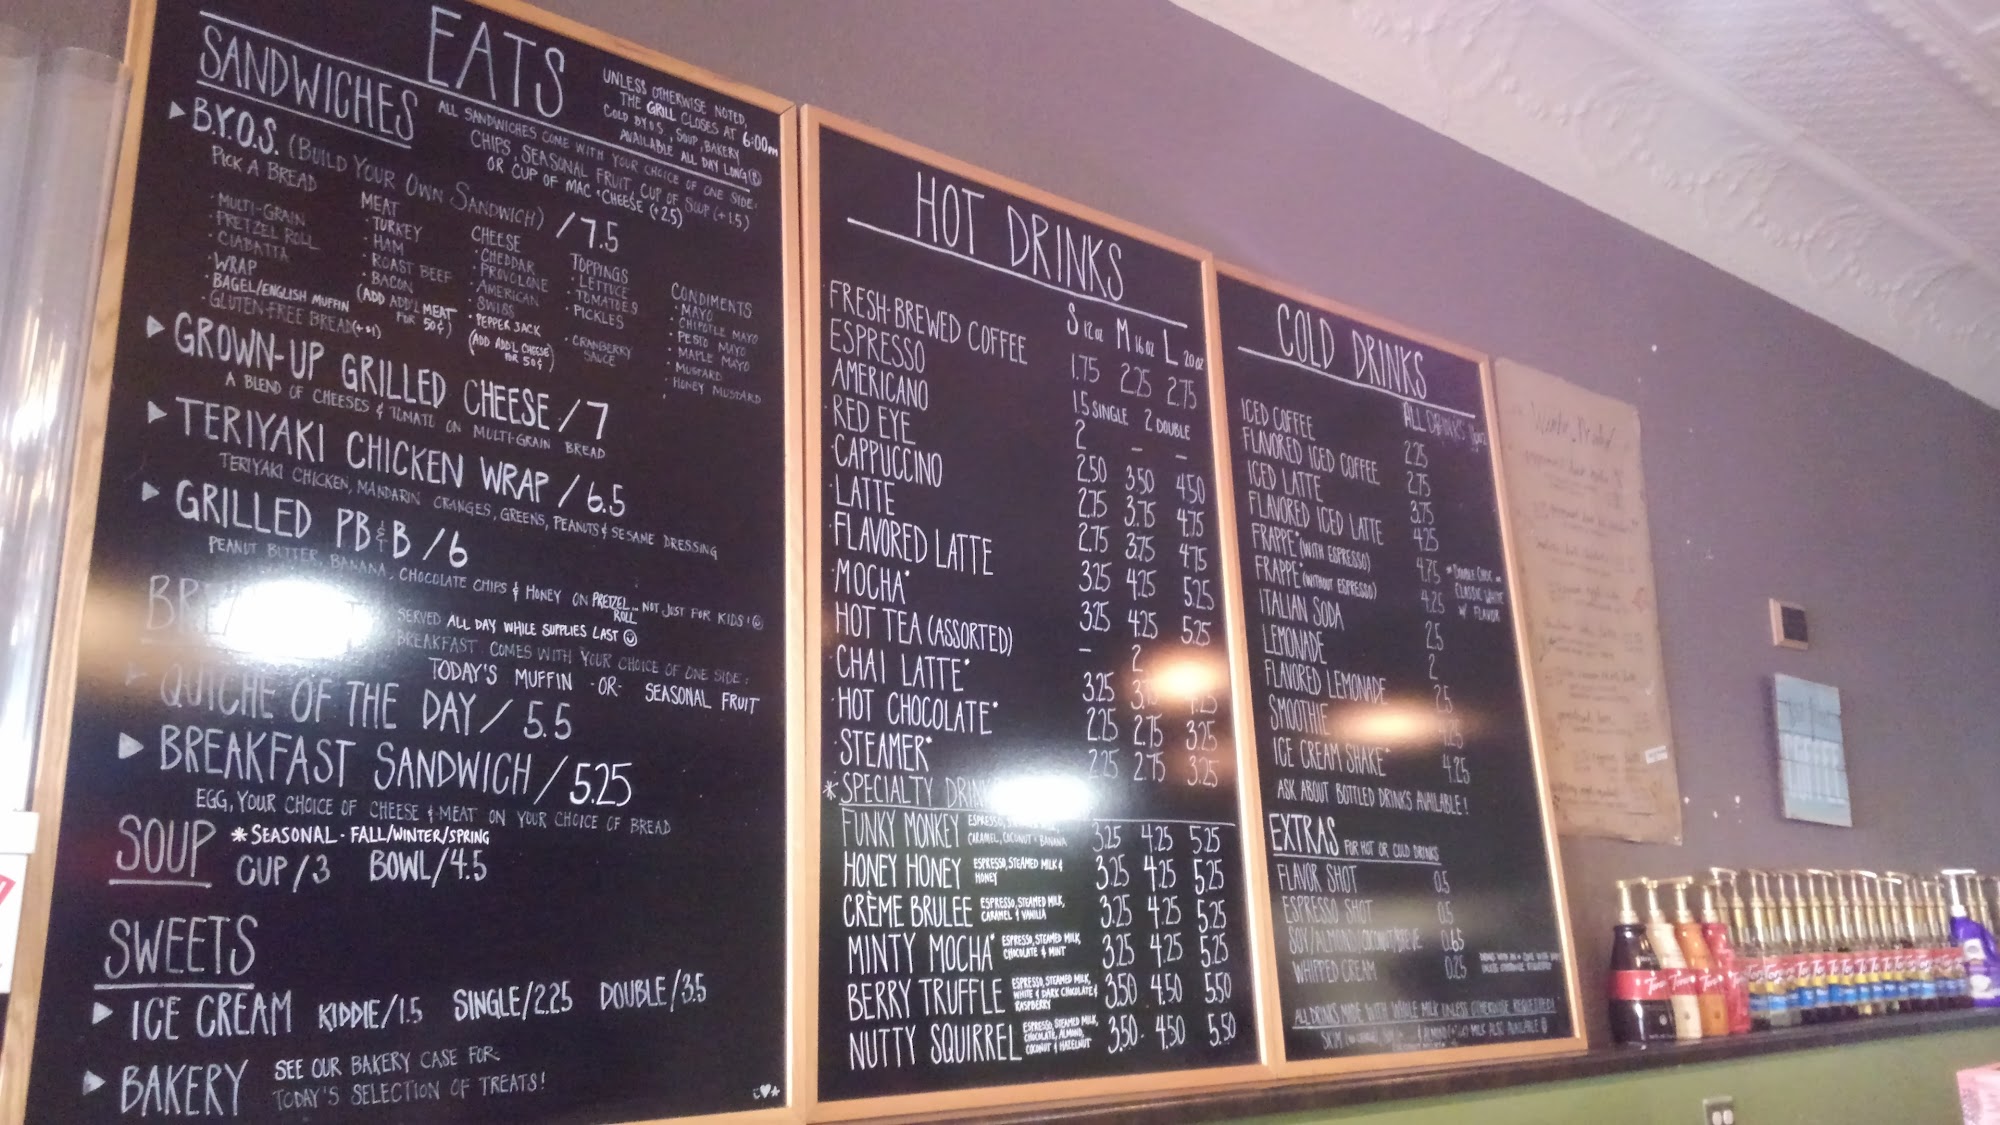 EATS
UNLESS OTHERWISE NOTED,
THE GRILL CLOSES AT 6:00PM
COLD BYOS, SOUP, BAKERY
AVAILABLE ALL DAY LONG
SANDWICHES
ALL SANDWICHES COME WITH YOUR CHOICE OF ONE SIDE:
CHIPS, SEASONAL FRUIT, CUP OF SOUP (+1.5)
OR CUP OF MAC + CHEESE (+2.5)
B.Y.O.S. (BUILD YOUR OWN SANDWICH) /7.5
PICK A BREAD
· MULTI-GRAIN
· PRETZEL ROLL
· CIABATTA
· WRAP
· BAGEL/ENGLISH MUFFIN
· GLUTEN-FREE BREAD (+$1)
MEAT
· TURKEY
· HAM
· ROAST BEEF
· BACON
(ADD ADD'L MEAT
FOR 50¢)
CHEESE
· CHEDDAR
· PROVOLONE
· AMERICAN
· SWISS
· PEPPER JACK
(ADD ADD'L CHEESE
FOR 50¢)
TOPPINGS
· LETTUCE
· TOMATOES
· PICKLES
· CRANBERRY
SAUCE
CONDIMENTS
· MAYO
· CHIPOTLE MAYO
· PESTO MAYO
· MAPLE MAYO
· MUSTARD
· HONEY MUSTARD
GROWN-UP GRILLED CHEESE /7
A BLEND OF CHEESES & TOMATO ON MULTI-GRAIN BREAD
TERIYAKI CHICKEN WRAP /6.5
TERIYAKI CHICKEN, MANDARIN ORANGES, GREENS, PEANUTS & SESAME DRESSING
GRILLED PB & B /6
PEANUT BUTTER, BANANA, CHOCOLATE CHIPS & HONEY ON PRETZEL ROLL... NOT JUST FOR KIDS!
SERVED ALL DAY WHILE SUPPLIES LAST
BREAKFAST COMES WITH YOUR CHOICE OF ONE SIDE:
TODAY'S MUFFIN -OR- SEASONAL FRUIT
QUICHE OF THE DAY / 5.5
BREAKFAST SANDWICH / 5.25
EGG, YOUR CHOICE OF CHEESE & MEAT ON YOUR CHOICE OF BREAD
SOUP *SEASONAL - FALL/WINTER/SPRING
CUP/3 BOWL/4.5
SWEETS
ICE CREAM KIDDIE/1.5 SINGLE/2.25 DOUBLE/3.5
BAKERY SEE OUR BAKERY CASE FOR
TODAY'S SELECTION OF TREATS!
HOT DRINKS
S 12oz M 16oz L 20oz
· FRESH-BREWED COFFEE 1.75 2.25 2.75
· ESPRESSO 1.5 SINGLE 2 DOUBLE
· AMERICANO 2 – –
· RED EYE 2.50 3.50 4.50
· CAPPUCCINO 2.75 3.75 4.75
· LATTE 2.75 3.75 4.75
· FLAVORED LATTE 3.25 4.25 5.25
· MOCHA* 3.25 4.25 5.25
· HOT TEA (ASSORTED) – 2
· CHAI LATTE* 3.25
· HOT CHOCOLATE* 2.25 2.75 3.25
· STEAMER* 2.25 2.75 3.25
*SPECIALTY
FUNKY MONKEY ESPRESSO,
CARAMEL, COCONUT & BANANA 3.25 4.25 5.25
HONEY HONEY ESPRESSO, STEAMED MILK &
HONEY 3.25 4.25 5.25
CRÈME BRULEE ESPRESSO, STEAMED MILK,
CARAMEL & VANILLA 3.25 4.25 5.25
MINTY MOCHA* ESPRESSO, STEAMED MILK,
CHOCOLATE & MINT 3.25 4.25 5.25
BERRY TRUFFLE ESPRESSO, STEAMED MILK,
WHITE & DARK CHOCOLATE &
RASPBERRY 3.50 4.50 5.50
NUTTY SQUIRREL ESPRESSO, STEAMED MILK,
CHOCOLATE, ALMOND,
COCONUT & HAZELNUT 3.50 4.50 5.50
COLD DRINKS
ALL DRINKS
ICED COFFEE 2.25
FLAVORED ICED COFFEE 2.75
ICED LATTE 3.75
FLAVORED ICED LATTE 4.25
FRAPPE* (WITH ESPRESSO) 4.75
FRAPPE* (WITHOUT ESPRESSO) 4.25
*DOUBLE CHOC OR
CLASSIC WHITE
W/ FLAVOR
ITALIAN SODA 2.5
LEMONADE 2
FLAVORED LEMONADE 2.5
SMOOTHIE 4.25
ICE CREAM SHAKE* 4.25
ASK ABOUT BOTTLED DRINKS AVAILABLE!
EXTRAS FOR HOT OR COLD DRINKS
FLAVOR SHOT 0.5
ESPRESSO SHOT 0.5
SOY/ALMOND/COCONUT/BREVE 0.65
WHIPPED CREAM 0.25
ALL DRINKS MADE WITH WHOLE MILK UNLESS OTHERWISE REQUESTED!
MILK ALSO AVAILABLE
Torani